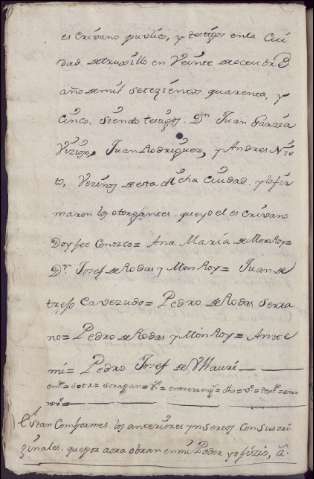 escrivano publico, y testigos en la Ciu
dad de truxillo en Veinte de
año de mil setezientos quarenta, y
Cinco. Siendo testigos. Dn Juan Garzia
Juan Rodriguez, y Andres Nie
to, Vezinos de esta dicha Ciudad, y lo fir
maron los otorgantes, que yo el escrivano
Doy fee Conozco= Ana Maria de Monrroy=
Dn Josef de Rodas y Monrroy= Juan de
Cavezudo= Pedro de Rodas Serra
no= Pedro de Rodas y Monrroy= Ante
mi= Pedro Josef de
Estan Conformes los anteriores ynsertos Con sus ori
ginales, que por aora obran en mi Poder y ofizio, a